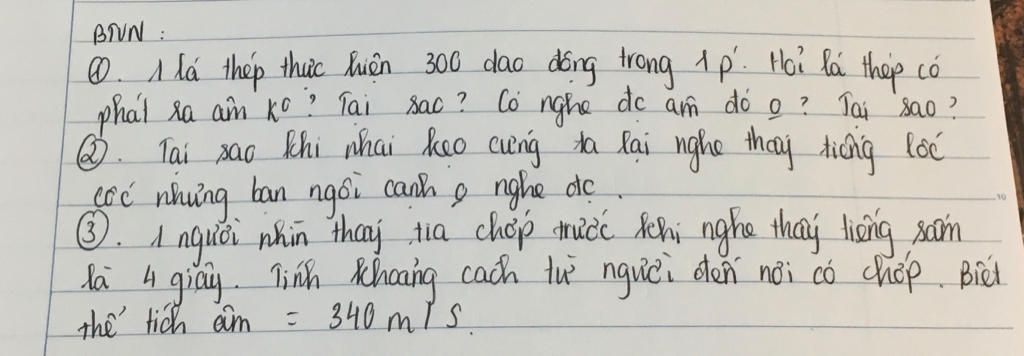 BTVN :
①. 1 lá thép thực hiện 300 dao động trong 1 p'. Hỏi lá thép có
phát ra âm ko? Tại sao? Có nghe đc âm đó o? Tại sao?
②. Tại sao khi nhai kẹo cứng ta lại nghe thấy tiếng lốc
cốc nhưng bạn ngồi cạnh o nghe đc.
③. 1 người nhìn thấy tia chớp trước khi nghe thấy tiếng sấm
là 4 giây. Tính khoảng cách từ người đến nơi có chớp. Biết
thể tích âm = 340 m/s.